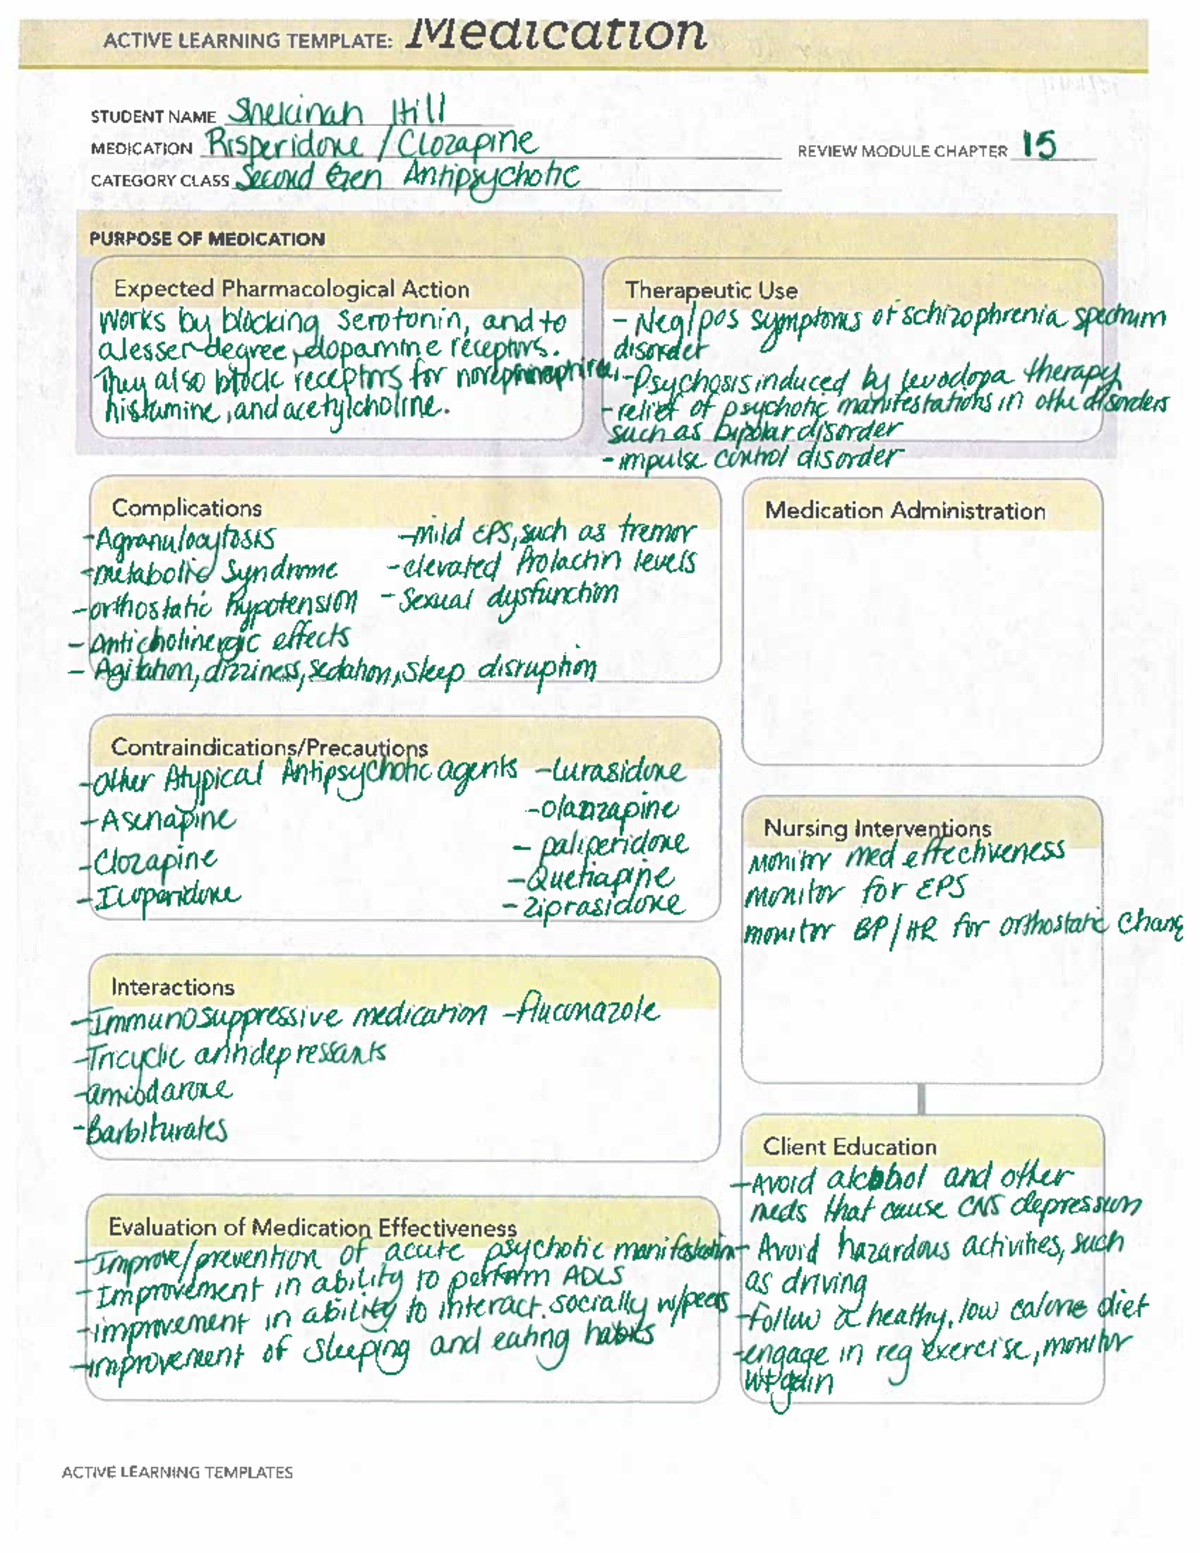 ACTIVE LEARNING TEMPLATE: Medication
STUDENT NAME Shekinah Hill
MEDICATION Risperidone / Clozapine
REVIEW MODULE CHAPTER 15
CATEGORY CLASS Second Gen Antipsychotic
PURPOSE OF MEDICATION
Expected Pharmacological Action
works by blocking serotonin, and to
a lesser degree, dopamine receptors.
They also block receptors for norepinephrine,
histamine, and acetylcholine.
Therapeutic Use
- Neg/pos symptoms of schizophrenia spectrum
disorder
- Psychosis induced by levodopa therapy
- relief of psychotic manifestations in othe disorders
such as bipolar disorder
- impulse control disorder
Complications
- Agranulocytosis
- metabolic syndrome
- orthostatic hypotension
- Anticholinergic effects
- Agitation, dizziness, sedation, sleep disruption
- mild EPS, such as tremor
- elevated Prolactin levels
- Sexual dysfunction
Medication Administration
Contraindications/Precautions
- Other Atypical Antipsychotic agents
- Asenapine
- Clozapine
- Iloperidone
- Lurasidone
- olanzapine
- paliperidone
- Quetiapine
- Ziprasidone
Nursing Interventions
Monitor med effectiveness
monitor for EPS
monitor BP/HR for orthostatic chang
Interactions
- Immunosuppressive medication - fluconazole
- Tricyclic antidepressants
- amiodarone
- Barbiturates
Client Education
- Avoid alcohol and other
meds that cause CNS depression
- Avoid hazardous activities, such
as driving
- Follow a healthy, low calorie diet
- engage in reg exercise, monitor
wt gain
Evaluation of Medication Effectiveness
- Improve/prevention of acute psychotic manifestation
- Improvement in ability to perform ADLS
- improvement in ability to interact socially w/peers
- improvement of sleeping and eating habits
ACTIVE LEARNING TEMPLATES